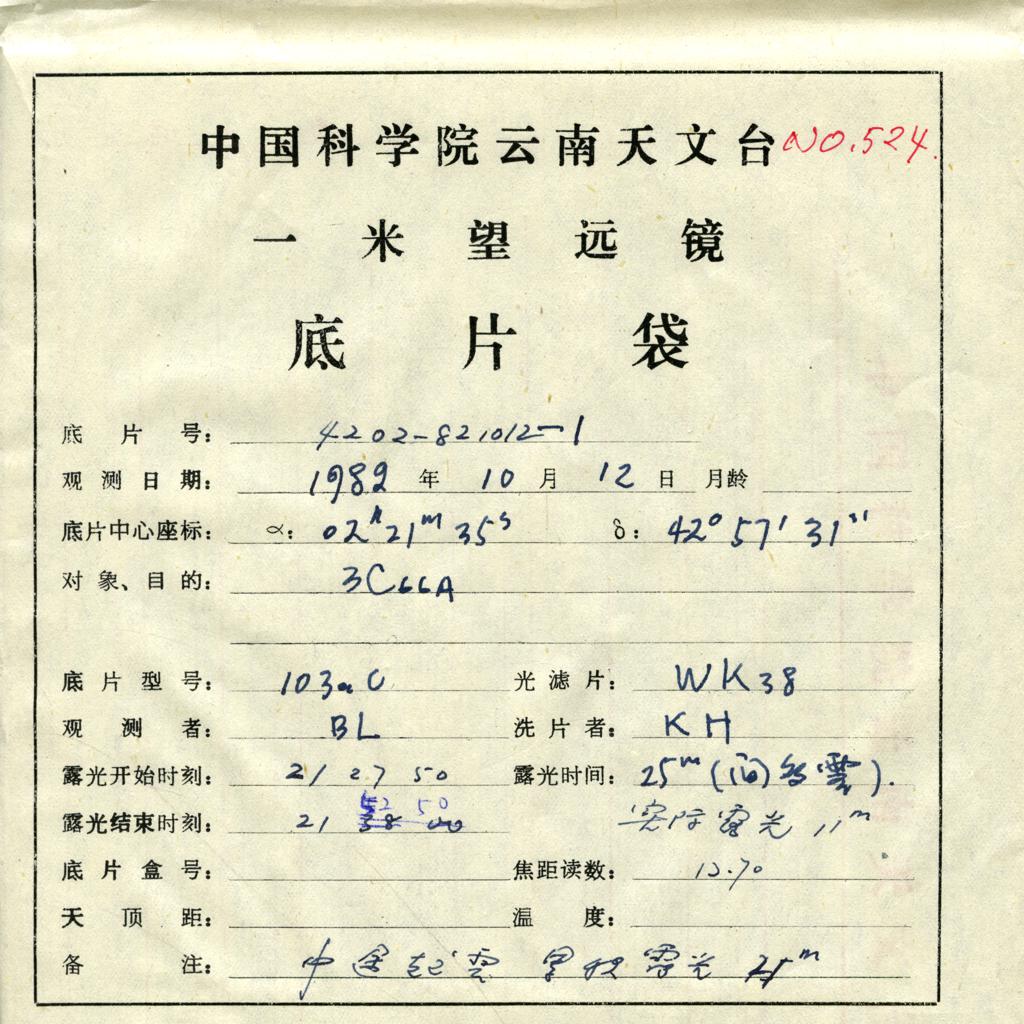 中国科学院云南天文台 NO.524.
一米望远镜
底片袋
底片号: 4202-821012-1
观测日期: 1982 年 10 月 12 日 月龄
底片中心座标: α: 02h 21m 35s δ: 42° 57' 31"
对象、目的: 3C66A
底片型号: 103aO 光滤片: WK38
观测者: BL 洗片者: KH
露光开始时刻: 21 27 50 露光时间: 25m (间多雲).
52 50
露光结束时刻: 21 38 00 实际露光 11m
底片盒号: 焦距读数: 12.70
天顶距: 温度:
备注: 中途起雲 露光 25m